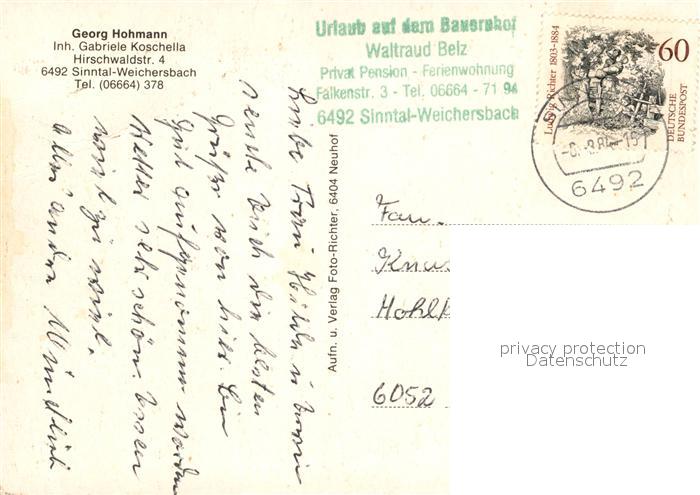 Georg Hohmann
Inh. Gabriele Koschella
Hirschwaldstr. 4
6492 Sinntal-Weichersbach
Tel. (06664) 378
Urlaub auf dem Bauernhof
Waltraud Belz
Privat Pension - Ferienwohnung
Falkenstr. 3 - Tel. 06664 - 71 94
6492 Sinntal-Weichersbach
Ludwig Richter 1803-1884
60
DEUTSCHE
BUNDESPOST
6492
Liebe Frau
sende Euch die besten
Grüße von hier. Bin
gut aufgenommen worden
Wetter sehr schön. Essen
wird zu viel.
Alles andere Mündlich
Aufn. u. Verlag Foto-Richter, 6404 Neuhof
Frau
6052
privacy protection
Datenschutz